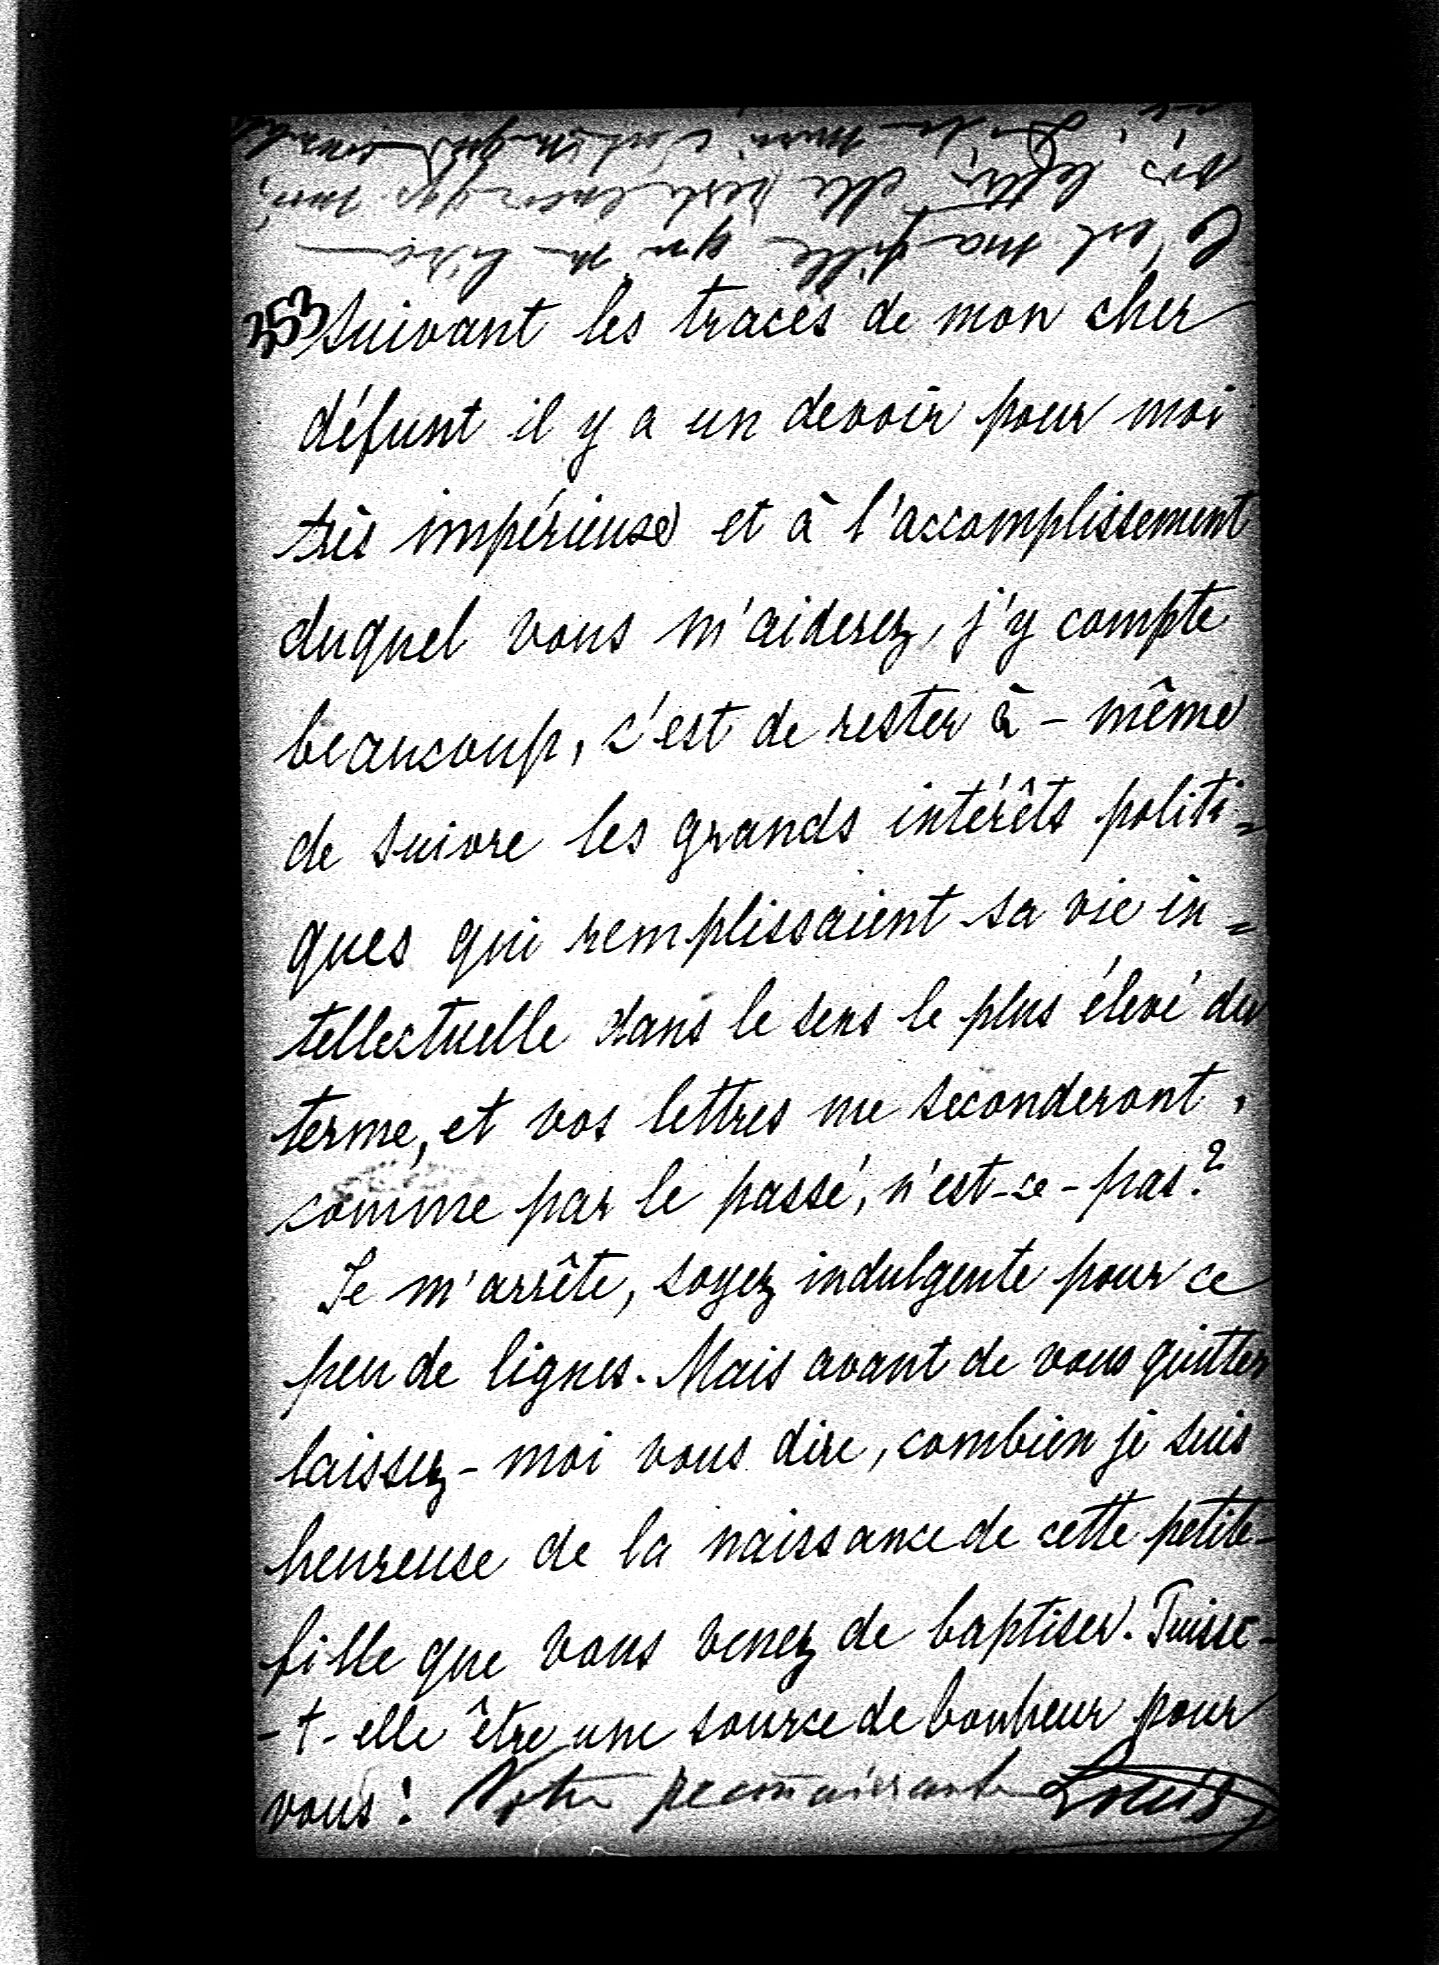 C'est ma fille qui
lettre, elle
353
Suivant les traces de mon cher
défunt il y a un devoir pour moi
très impérieuse et à l'accomplissement
duquel vous m'aiderez, j'y compte
beaucoup, c'est de rester à-même
de suivre les grands intérêts politi=
ques qui remplissaient sa vie in=
tellectuelle dans le sens le plus élevé du
terme, et vos lettres me seconderont,
comme par le passé, n'est-ce-pas?
Je m'arrête, soyez indulgente pour ce
peu de lignes. Mais avant de vous quitter
laissez-moi vous dire, combien je suis
heureuse de la naissance de cette petite-
fille que vous venez de baptiser. Puisse-
-t-elle être une source de bonheur pour
vous! Votre reconnaissante Louis